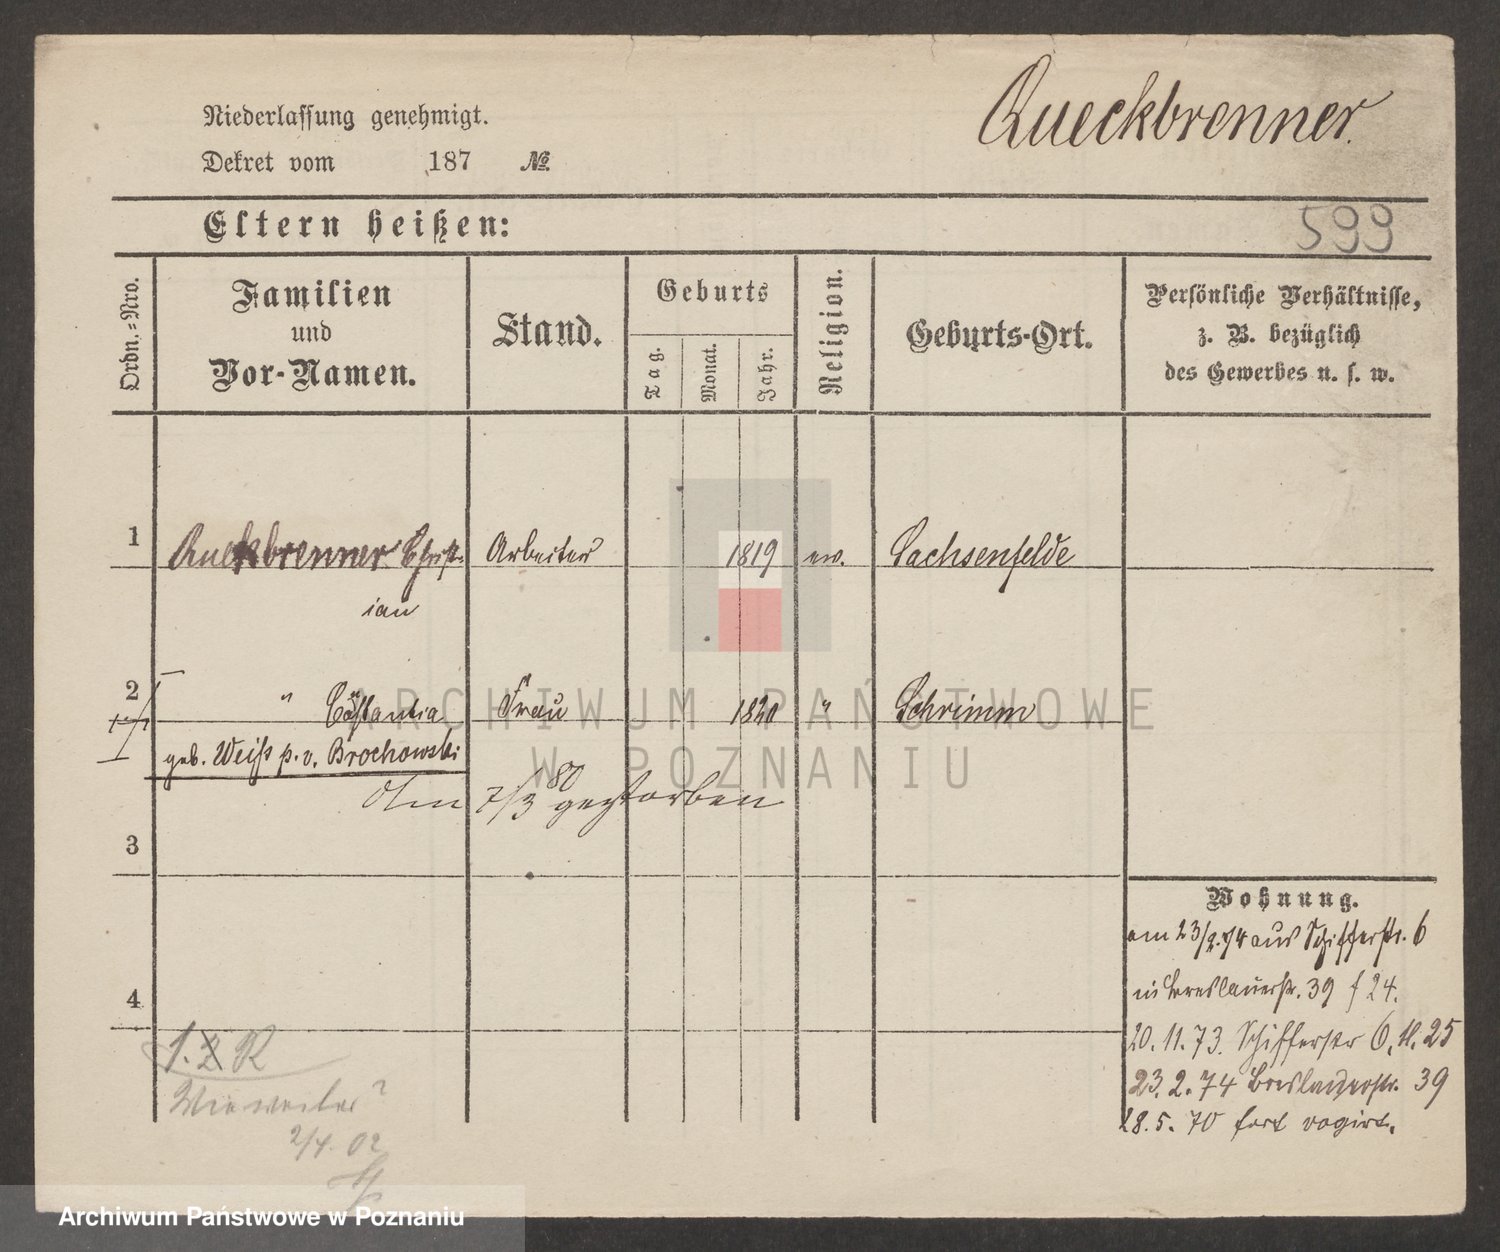 Niederlassung genehmigt.
Dekret vom 187 №
Queckbrenner.
Eltern heißen:
599
Ordn.=Nro.
Familien
und
Vor-Namen.
Stand.
Geburts
Tag.
Monat.
Jahr.
Religion.
Geburts-Ort.
Persönliche Verhältnisse,
z. B. bezüglich
des Gewerbes u. s. w.
1 Queckbrenner Christ- Arbeiter 1819 ev. Sachsenfelde
ian
2 " Constantia Frau 1820 " Schrimm
geb. Weiß p. v. Brochowski
Am 7/3 80 gestorben
3
Wohnung.
am 23/2.74 aus Schifferstr. 6
in Breslauerstr. 39 f 24.
4
20. 11. 73. Schifferstr 6, 11. 25
23. 2. 74 Breslauerstr. 39
28. 5. 70 fort vagirt.
1. 2 R
Wie weiter?
2/4. 02
ARCHIWUM PAŃSTWOWE
W POZNANIU
Archiwum Państwowe w Poznaniu